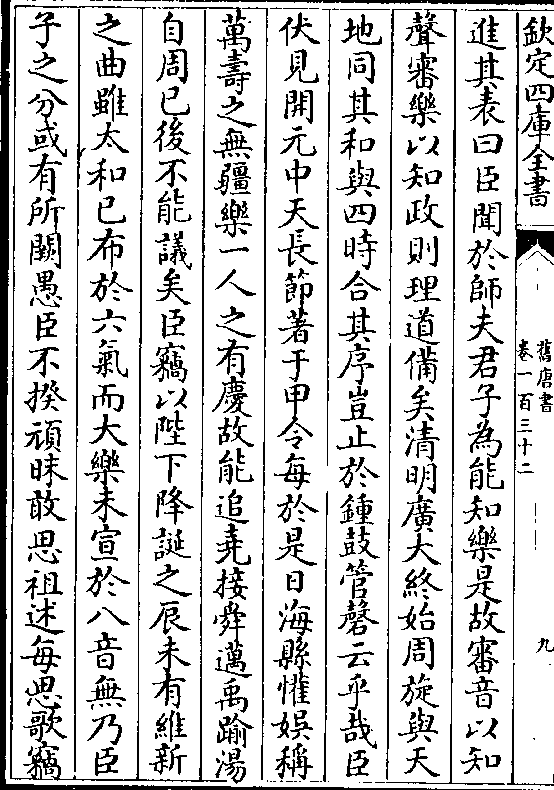 欽定四庫全書
舊唐書
卷一百三十二
九
進其表曰臣聞於師夫君子為能知樂是故審音以知
聲審樂以知政則理道備矣清明廣大終始周旋與天
地同其和與四時合其序豈止於鍾鼓管磬云乎哉臣
伏見開元中天長節著于甲令每於是日海縣懽娯稱
萬壽之無疆樂一人之有慶故能追堯接舜邁禹踰湯
自周已後不能議矣臣竊以陛下降誕之辰未有維新
之曲雖太和已布於六氣而大樂未宣於八音無乃臣
子之分或有所闕愚臣不揆頑昧敢思祖述每思歌竊